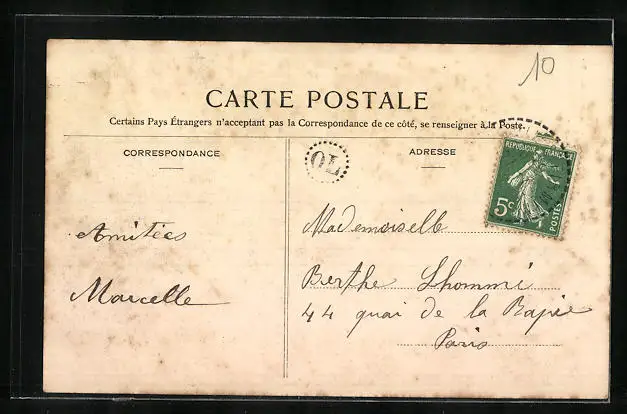 10
CARTE POSTALE
Certains Pays Étrangers n'acceptant pas la Correspondance de ce côté, se renseigner à la Poste.
CORRESPONDANCE
ADRESSE
OL
REPUBLIQUE FRANÇAISE
5c
POSTES
Amitiées
Marcelle
Mademoiselle
Berthe Lhommé
44 quai de la Rapée
Paris